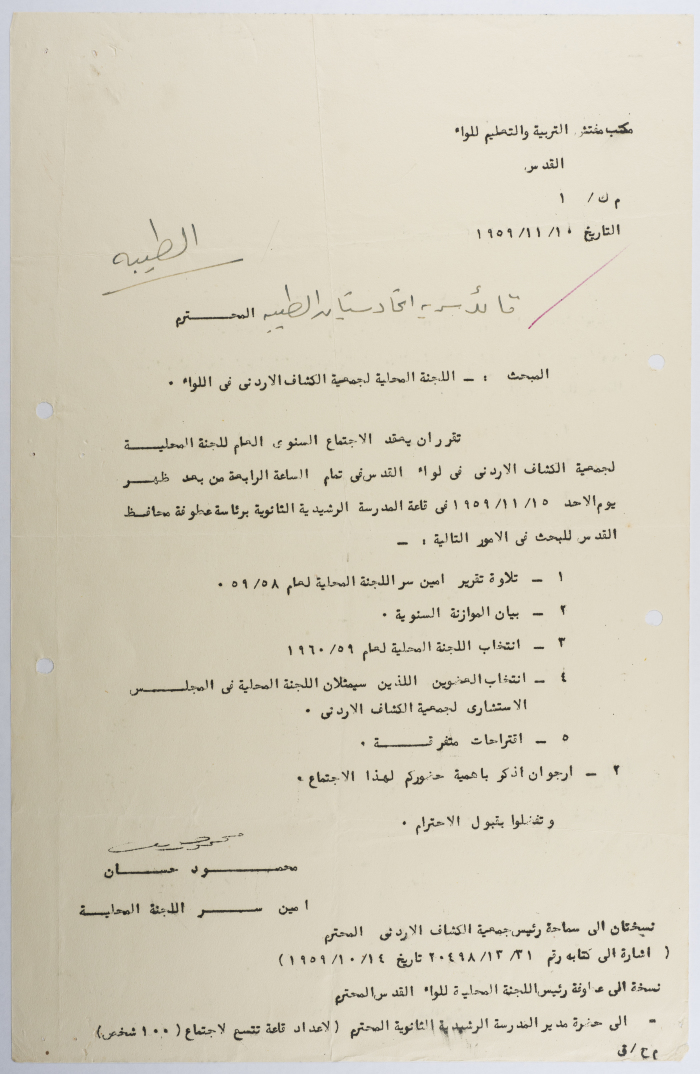 مكتب مفتش التربية والتعليم للواء
القدس
م ك / ١
التاريخ ١٩٥٩/١١/١٠
الطيبه
قائد سريه اتحاد ستيان الطيبه المحـــــترم
المبحث : ــ اللجنة المحلية لجمعية الكشاف الاردنى فى اللواء ٠
تقرر ان يعقد الاجتماع السنوى العام للجنة المحليــة
لجمعية الكشاف الاردنى فى لواء القدس فى تمام الساعة الرابعة من بعد ظهـــر
يوم الاحد ١٩٥٩/١١/١٥ فى قاعة المدرسة الرشيدية الثانوية برئاسة عطوفة محافــظ
القدس للبحث فى الامور التالية : ــ
١ ــ تلاوة تقرير امين سر اللجنة المحلية لعام ٥٩/٥٨ ٠
٢ ــ بيان الموازنة السنوية ٠
٣ ــ انتخاب اللجنة المحلية لعام ١٩٦٠/٥٩
٤ ــ انتخاب العضوين اللذين سيمثلان اللجنة المحلية فى المجلــــس
الاستشارى لجمعية الكشاف الاردنى ٠
٥ ــ اقتراحات متفرقـــــة ٠
٢ ــ ارجو ان اذكر باهمية حضوركم لهذا الاجتماع ٠
وتفضلوا بقبول الاحترام ٠
محمـــــود حســـان
امين ســـــر اللجنة المحليــة
نسختان الى سماحة رئيس جمعية الكشاف الاردنى المحترم
( اشارة الى كتابه رقم ٢٠٤٩٨/١٣/٣١ تاريخ ١٩٥٩/١٠/١٤)
نسخة الى عطوفة رئيس اللجنة المحلية للواء القدس المحترم
ــ الى حضرة مدير المدرسة الرشيدية الثانوية المحترم (لاعداد قاعة تتسع لاجتماع (١٠٠ شخص)
م ح / ق